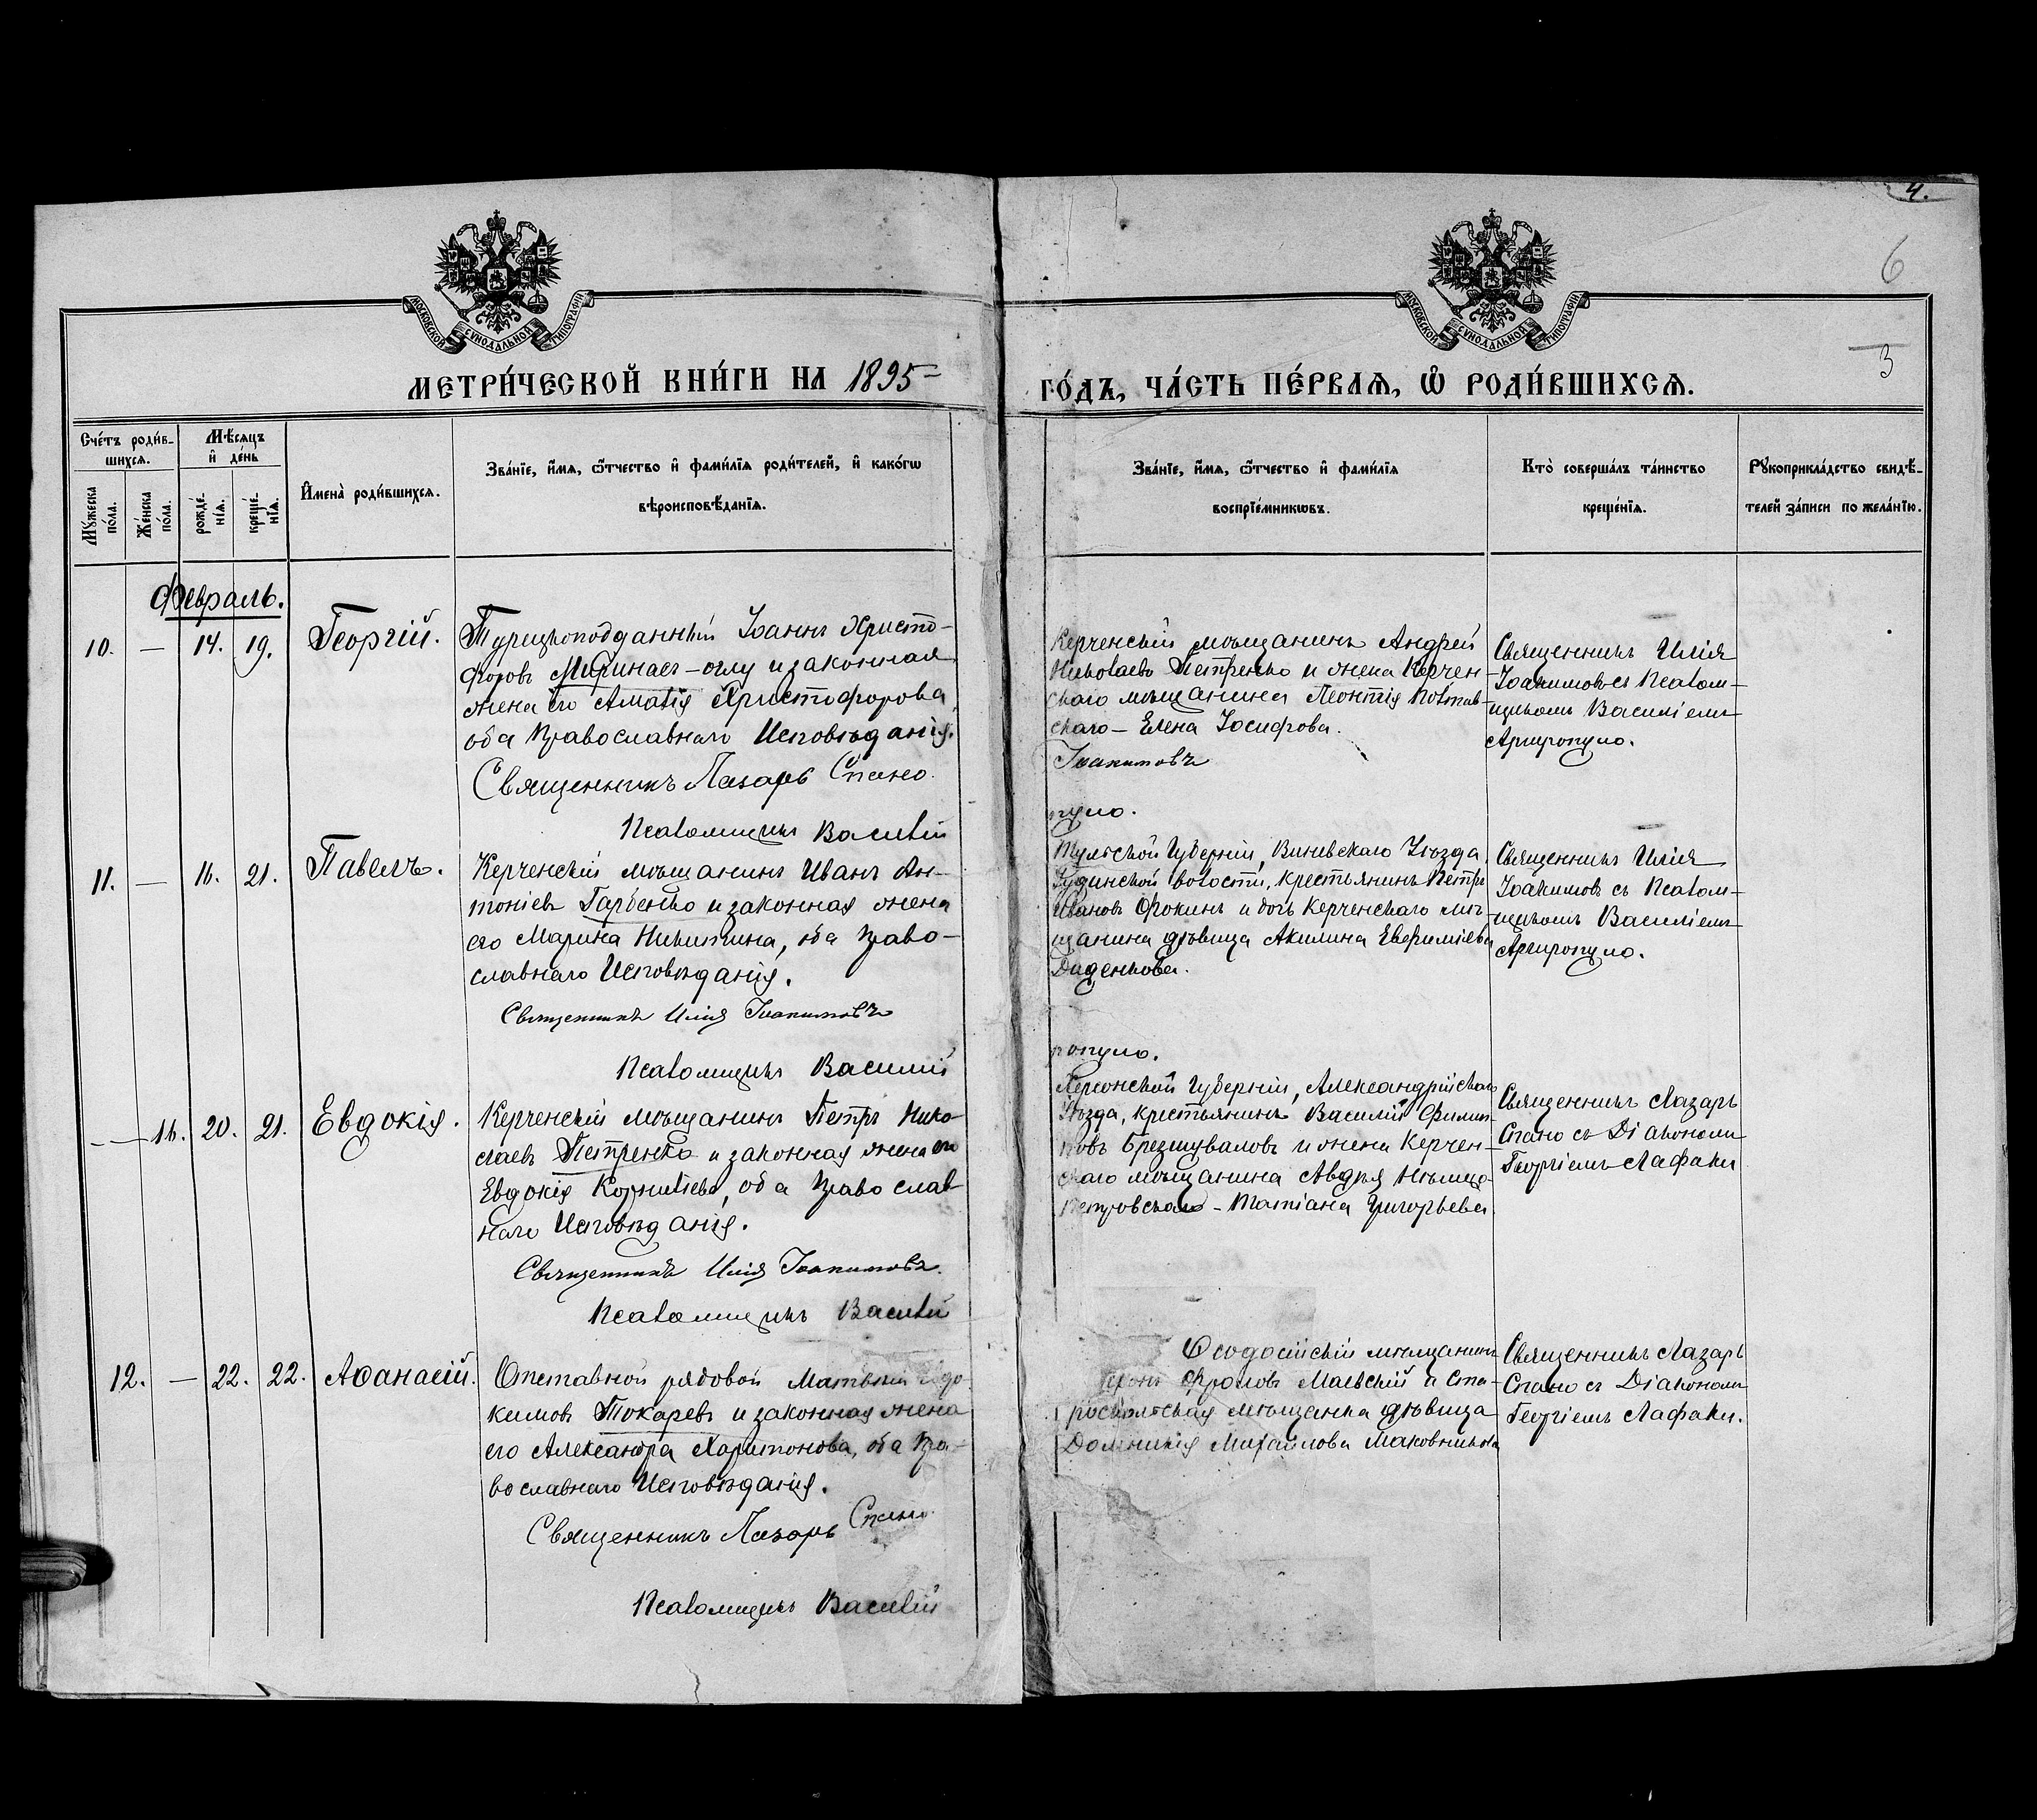 4.
6
3
МОСКОВСКОЙ СѴНОДАЛЬНОЙ ТИПОГРАФІИ
МОСКОВСКОЙ СѴНОДАЛЬНОЙ ТИПОГРАФІИ
МЕТРИ́ЧЕСКОЙ КНИ́ГИ НА 1895 ГО́ДЪ, ЧА́СТЬ ПЕ́РВАѦ, Ѽ РОДИ́ВШИХСѦ.
Сче́тъ роди́в-
шихсѧ.
Мꙋ́жеска по́ла.
Же́нска по́ла.
Мѣ́сѧцъ
и҆ де́нь
рожде́-
нїѧ.
креще́-
нїѧ.
И҆мена̀ роди́вшихсѧ.
Зва́нїе, и҆́мѧ, ѻ҆́тчество и҆ фами́лїѧ роди́телей, и҆ како́гѡ
вѣроисповѣ́данїѧ.
Зва́нїе, и҆́мѧ, ѻ҆́тчество и҆ фами́лїѧ
воспрїе́мникѡвъ.
Кто̀ соверша́лъ та́инство
креще́нїѧ.
Рꙋкоприкла́дство свидѣ́-
телей за́писи по жела́нїю.
Февраль.
10. — 14. 19. Георгій.
Турецкоподданный Іоаннъ Христо-
форовъ -оглу и законная
жена его Христофорова,
оба Православнаго Исповѣданія.
Священникъ Лазарь Спано.
Псаломщикъ Василій
Керченскій мѣщанинъ Андрей
Николаевъ Петренко и жена Керчен-
скаго мѣщанина Леонтія
скаго — Елена Іосифова.
Іоакимовъ
пуло.
Священникъ Илія
Іоакимовъ съ Псалом-
щикомъ Василіемъ
Аргиропуло.
11. — 16. 21. Павелъ.
Керченскій мѣщанинъ Иванъ Ан-
тоніевъ Гарбенко и законная жена
его Марина Никитина, оба Право-
славнаго Исповѣданія.
Священникъ Илія Іоакимовъ
Псаломщикъ Василій
Тульской Губерніи, Уѣзда,
волости, крестьянинъ Петръ
Ивановъ Фокинъ и дочь Керченскаго мѣ-
щанина дѣвица Акилина Евфиміева
Диденкова.
ропуло.
Священникъ Илія
Іоакимовъ съ Псалом-
щикомъ Василіемъ
Аргиропуло.
— 16. 20. 21. Евдокія.
Керченскій мѣщанинъ Петръ Нико-
лаевъ Петренко и законная жена его
Евдокія Корниліева, оба Православ
наго Исповѣданія.
Священникъ Илія Іоакимовъ.
Псаломщикъ Василій
Херсонской Губерніи, Александрійскаго
Уѣзда, крестьянинъ Василій Филип-
повъ и жена Керчен-
скаго мѣщанина Авдѣя
Петровскаго — Татіана Григорьева.
Священникъ Лазарь
Спано съ Діакономъ
Георгіемъ Лафаки
12. — 22. 22. Аѳанасій.
Отставной рядовой Матвѣй
кимовъ Токаревъ и законная жена
его Александра Харитонова, оба Пра-
вославнаго Исповѣданія.
Священникъ Лазарь Спано.
Псаломщикъ Василій
Ѳеодосійскій мѣщанинъ
Фроловъ Маевскій и Ста-
роскольская мѣщанка дѣвица
Домникія Михайлова Маковникова
Священникъ Лазарь
Спано съ Діакономъ
Георгіемъ Лафаки.